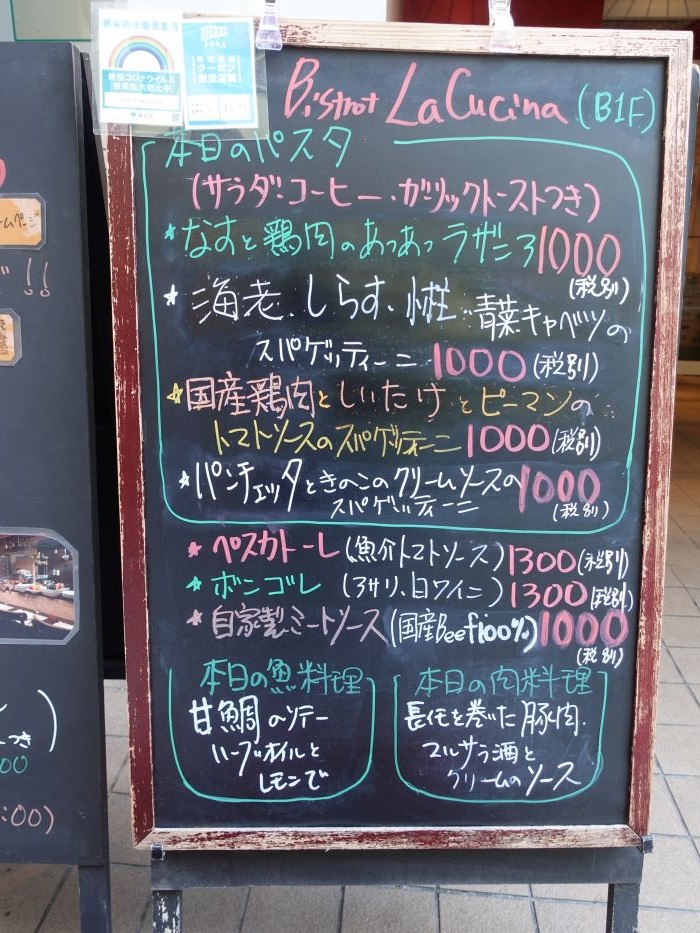 感染防止徹底宣言
新型コロナウイルス
感染拡大防止中
クーポン
取扱店舗
Bistrot LaCucina (B1F)
本日のパスタ
(サラダ・コーヒー・ガーリックトーストつき)
* なすと鶏肉のあつあつラザニア 1000
(税別)
* 海老、しらす、小柱、青菜キャベツの
スパゲッティーニ 1000 (税別)
* 国産鶏肉としいたけとピーマンの
トマトソースのスパゲッティーニ 1000 (税別)
* パンチェッタときのこのクリームソースの 1000
スパゲッティーニ (税別)
* ペスカトーレ (魚介トマトソース) 1300 (税別)
* ボンゴレ (アサリ、白ワイン) 1300 (税別)
* 自家製ミートソース (国産Beef100%) 1000
(税別)
本日の魚料理
甘鯛のソテー
ハーブオイルと
レモンで
本日の肉料理
を巻いた豚肉
マルサラ酒と
クリームのソース
ームペー
!!
)
つき
00
:00)